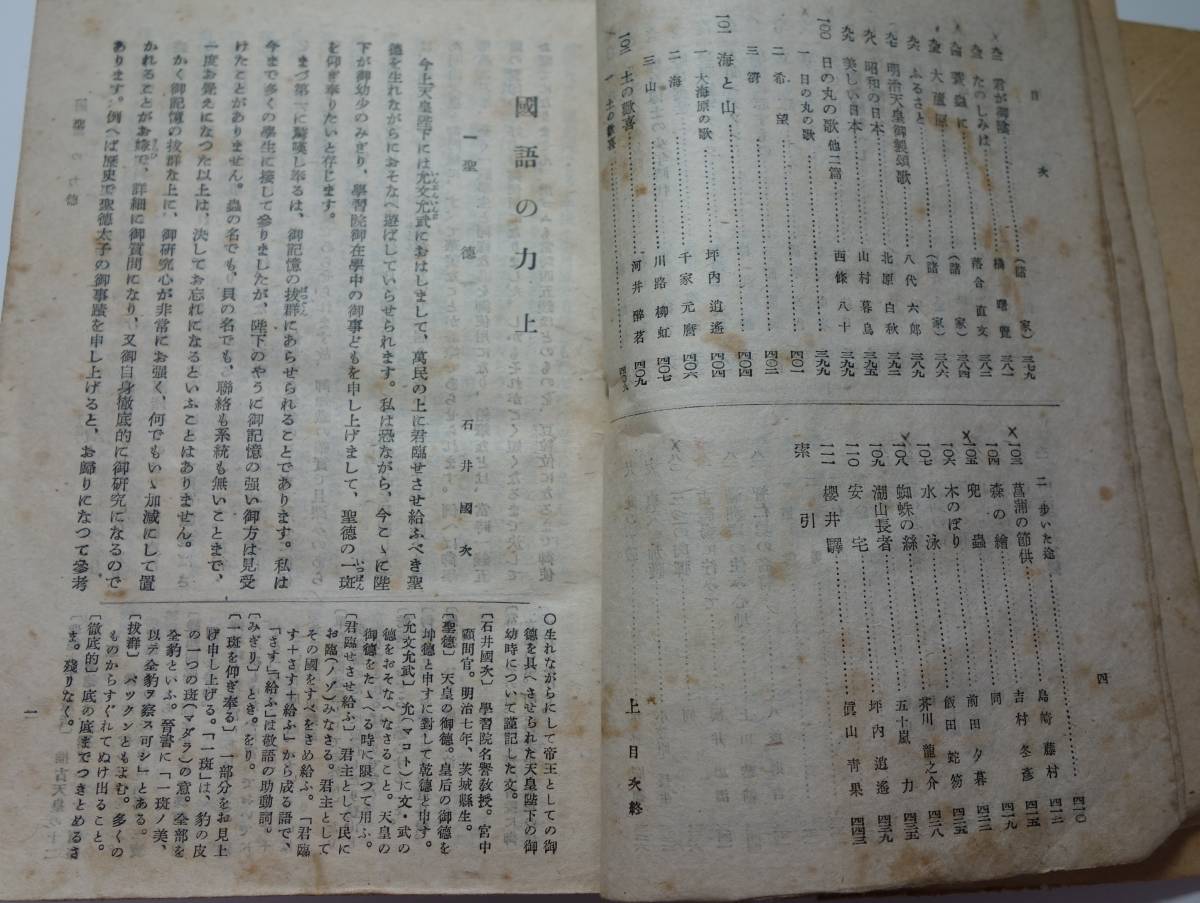 目次
君が御蔭……(諸家)…三七九
たのしみは……橘曙覽…三八一
……落合直文…三八二
蓑蟲に……(諸家)…三八四
大蘆原……(諸家)…三八六
ふるさと……八代六郎…三八九
九七 明治天皇御製頌歌……北原白秋…三九二
九八 昭和の日本……山村暮鳥…三九五
九九 美しい日本……西條八十…三九九
一〇〇 日の丸の歌 他二篇……三九九
一 日の丸の歌……四〇一
二 希望……四〇二
三 ……四〇四
一〇一 海と山
一 大海原の歌……坪内逍遙…四〇四
二 海……千家元麿…四〇六
三 山……川路柳虹…四〇七
一〇二 土の歡喜……河井醉茗…四〇九
一 土の歡喜……
二 步いた途……島崎藤村…四一〇
一〇三 菖蒲の節供……吉村冬彥…四一二
一〇四 森の繪……同…四一九
一〇五 兜蟲……前田夕暮…四二二
一〇六 木のぼり……飯田蛇笏…四二五
一〇七 水泳……芥川龍之介…四二八
一〇八 蜘蛛の絲……五十嵐力…四三五
一〇九 湖山長者……坪内逍遙…四三九
一一〇 安宅……眞山靑果…四四三
一一一 櫻井驛
索引
上目次終
四
國語の力 上
一 聖德
石井國次
今上天皇陛下には允文允武におはしまして、萬民の上に君臨せさせ給ふべき聖
德を生れながらにおそなへ遊ばしていらせられます。私は恐ながら、今こゝに陛
下が御幼少のみぎり、學習院御在學中の御事どもを申し上げまして、聖德の一斑
を仰ぎ奉りたいと存じます。
まづ第一に驚嘆し奉るは、御記憶の拔群にあらせられることであります。私は
今まで多くの學生に接して參りましたが、陛下のやうに御記憶の强い御方は見受
けたことがありません。蟲の名でも、貝の名でも、聯絡も系統も無いことまで、
一度お覺えになつた以上は、決してお忘れになるといふことはありません。
かく御記憶の拔群な上に、御硏究心が非常にお强く、何でもいゝ加減にして置
かれることがお嫌で、詳細に御質問になり、又御自身徹底的に御硏究になるので
あります。例へば歷史で聖德太子の御事蹟を申し上げると、お歸りになつて參考
○生れながらにして帝王としての御
德を具へさせられた天皇陛下の御
幼時について謹記した文。
〔石井國次〕 學習院名譽敎授。宮中
顧問官。明治七年、茨城縣生。
〔聖德〕 天皇の御德。皇后の御德を
坤德と申すに對して乾德と申す。
〔允文允武〕 允(マコト)に文・武の
德をおそなへなさること。天皇の
御德をたゝへる時に限つて用ふ。
〔君臨せさせ給ふ〕 君主として民に
お臨(ノゾ)みなさる。君主として
その國をすべをさめ給ふ。「君臨
す+さす+給ふ」から成る語で、
「さす」「給ふ」は敬語の助動詞。
〔みぎり〕 とき。をり。
〔一斑を仰ぎ奉る〕 一部分をお見上
げ申し上げる。「一斑」は、豹の皮
の一つの斑(マダラ)の意。全部を
全豹といふ。晉書に「一斑ノ美、
以テ全豹ヲ察ス可シ」とある。
〔拔群〕 バツクンともよむ。多くの
ものからすぐれてぬけ出ること。
〔徹底的〕 底の底までつきとめるさ
ま。殘りなく。
一